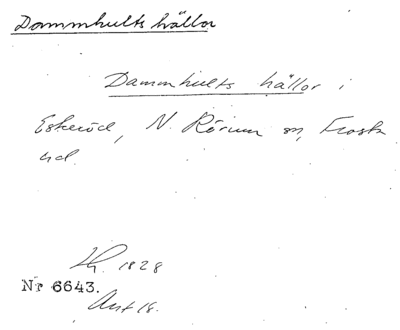 Dammhults hällor
Dammhults hällor i
Eskeröd, N. Rörum sn, Frosta
hd.
Lh. 1828
Nr 6643.
Ant 18.